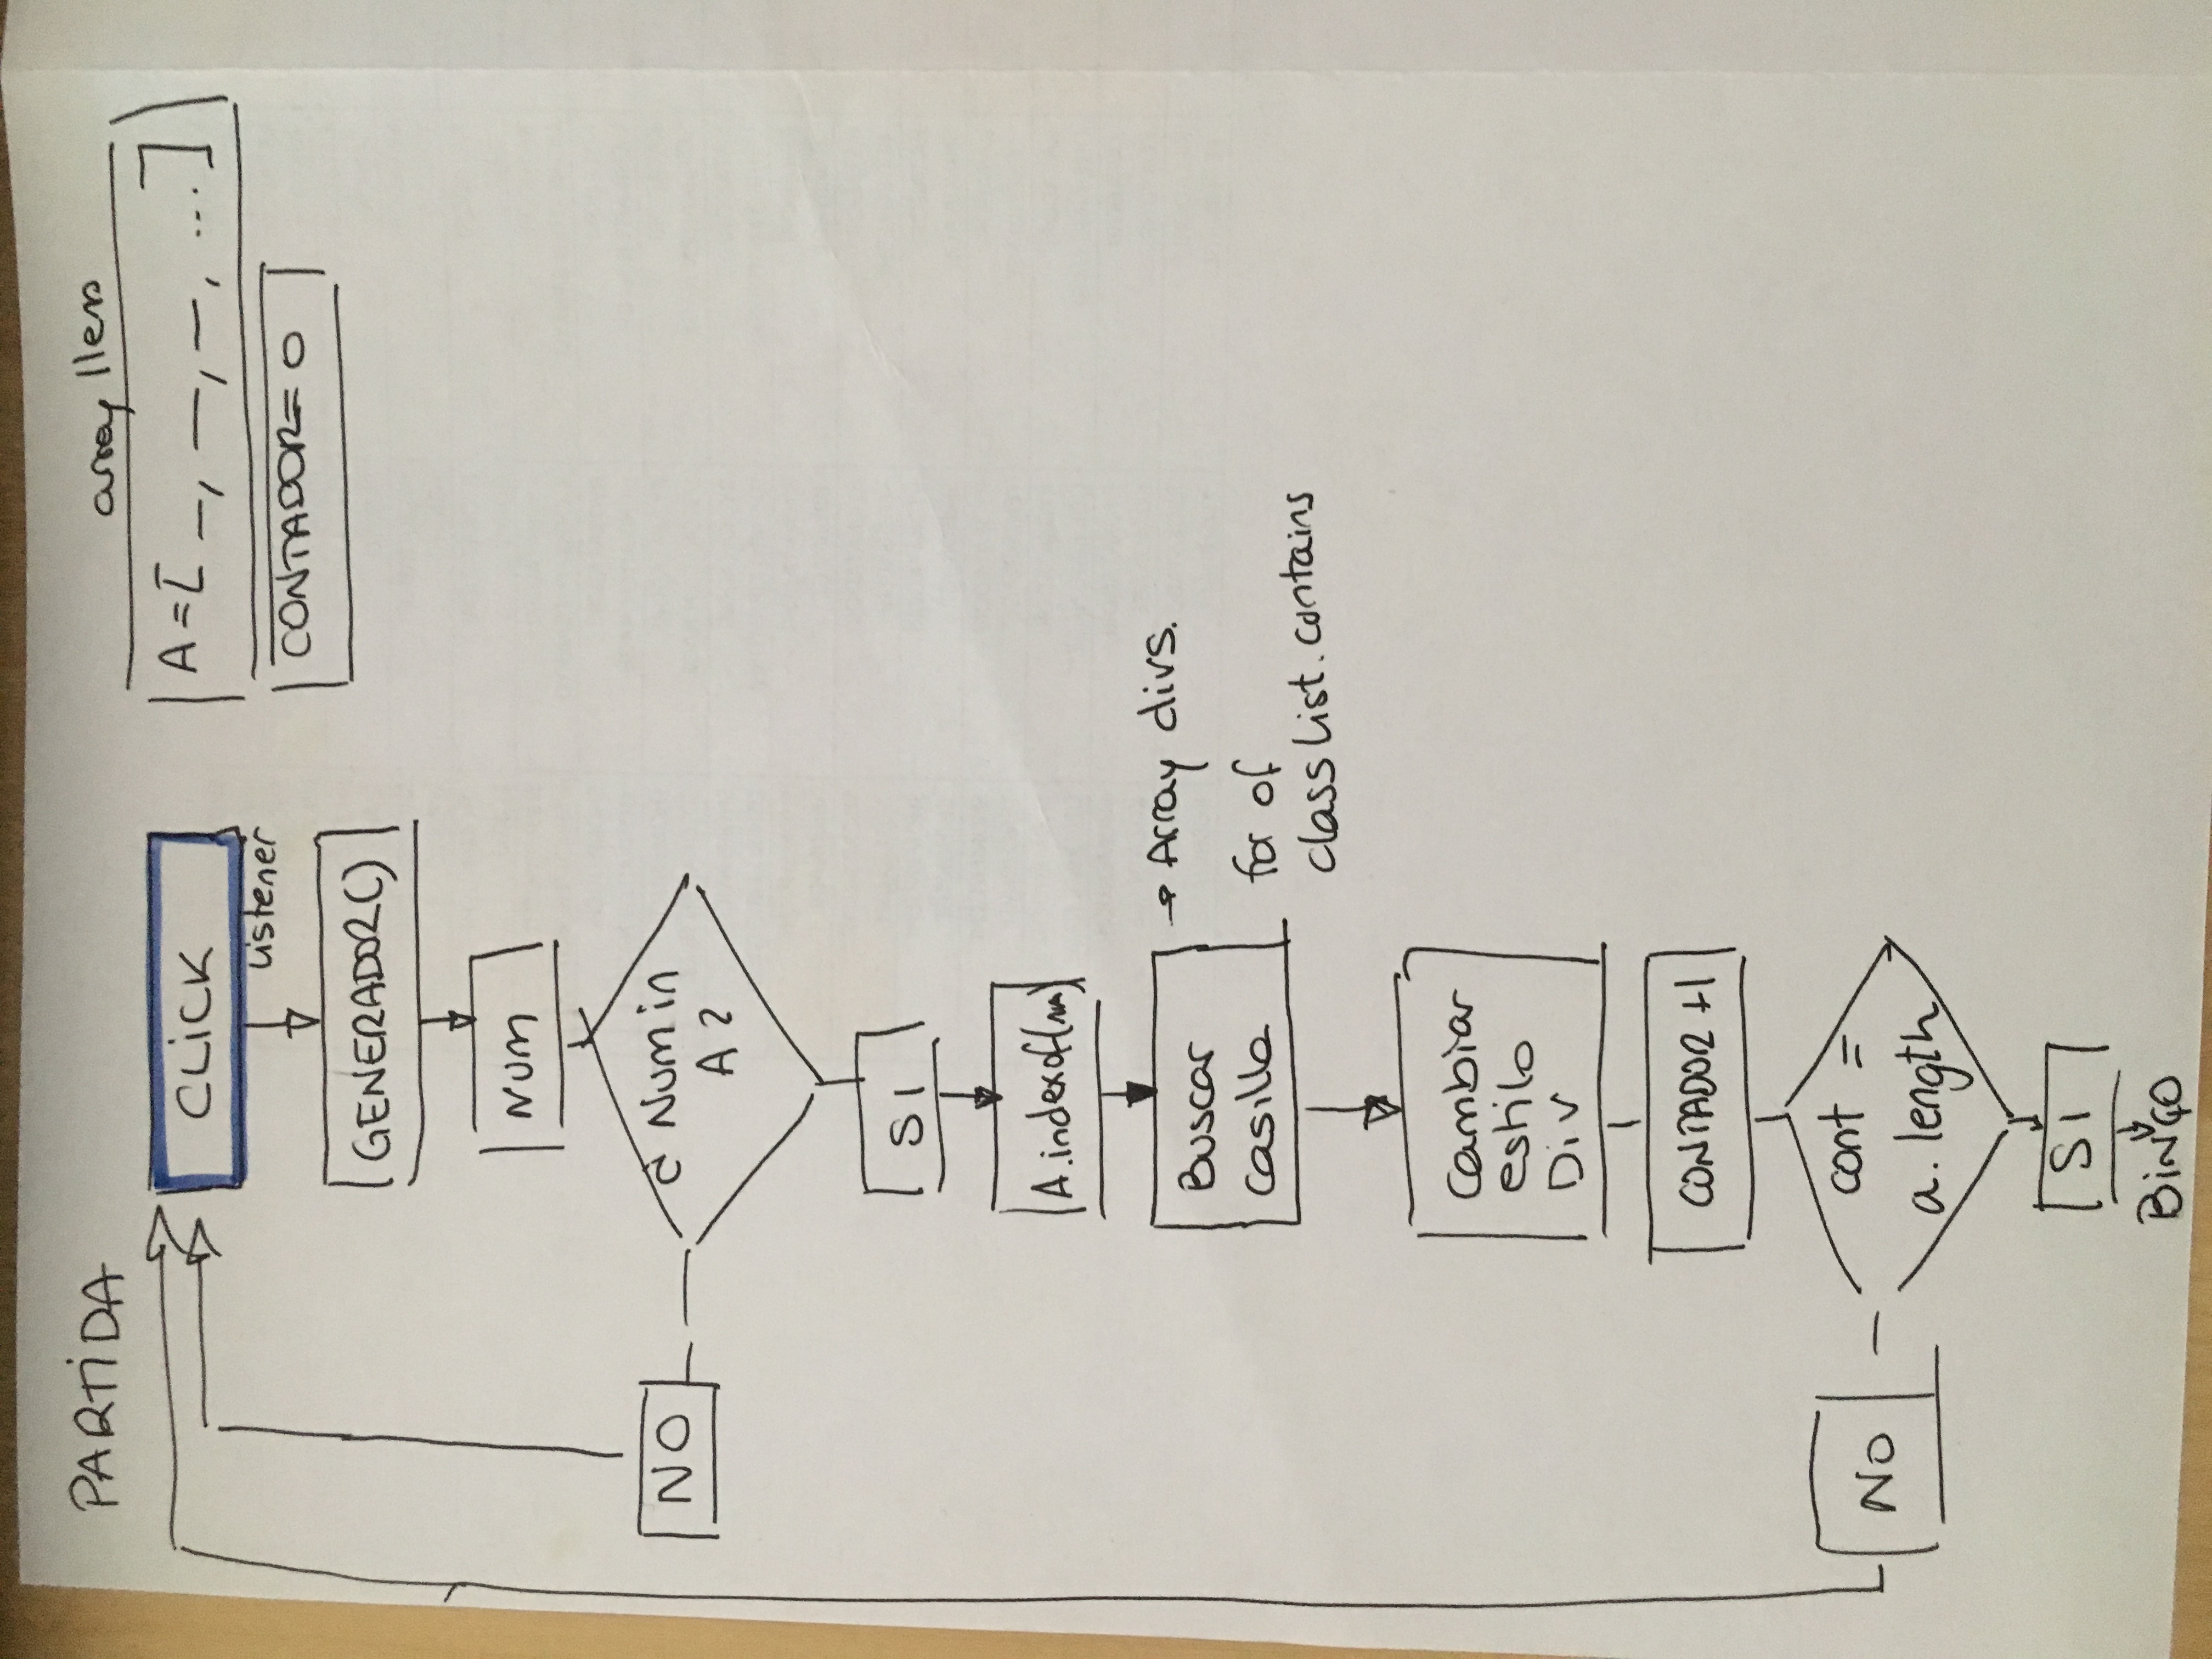 PARTIDA
array lleno
CLICK
A = [ _, _, _, ... ]
Listener
CONTADOR = 0
GENERADOR()
NUM
¿ Num in
A ?
NO
SI
A.indexof(num)
Buscar
casilla
→ Array divs.
for of
classlist.contains
Cambiar
estilo
Div
CONTADOR +1
cont =
a. length
NO
SI
BINGO